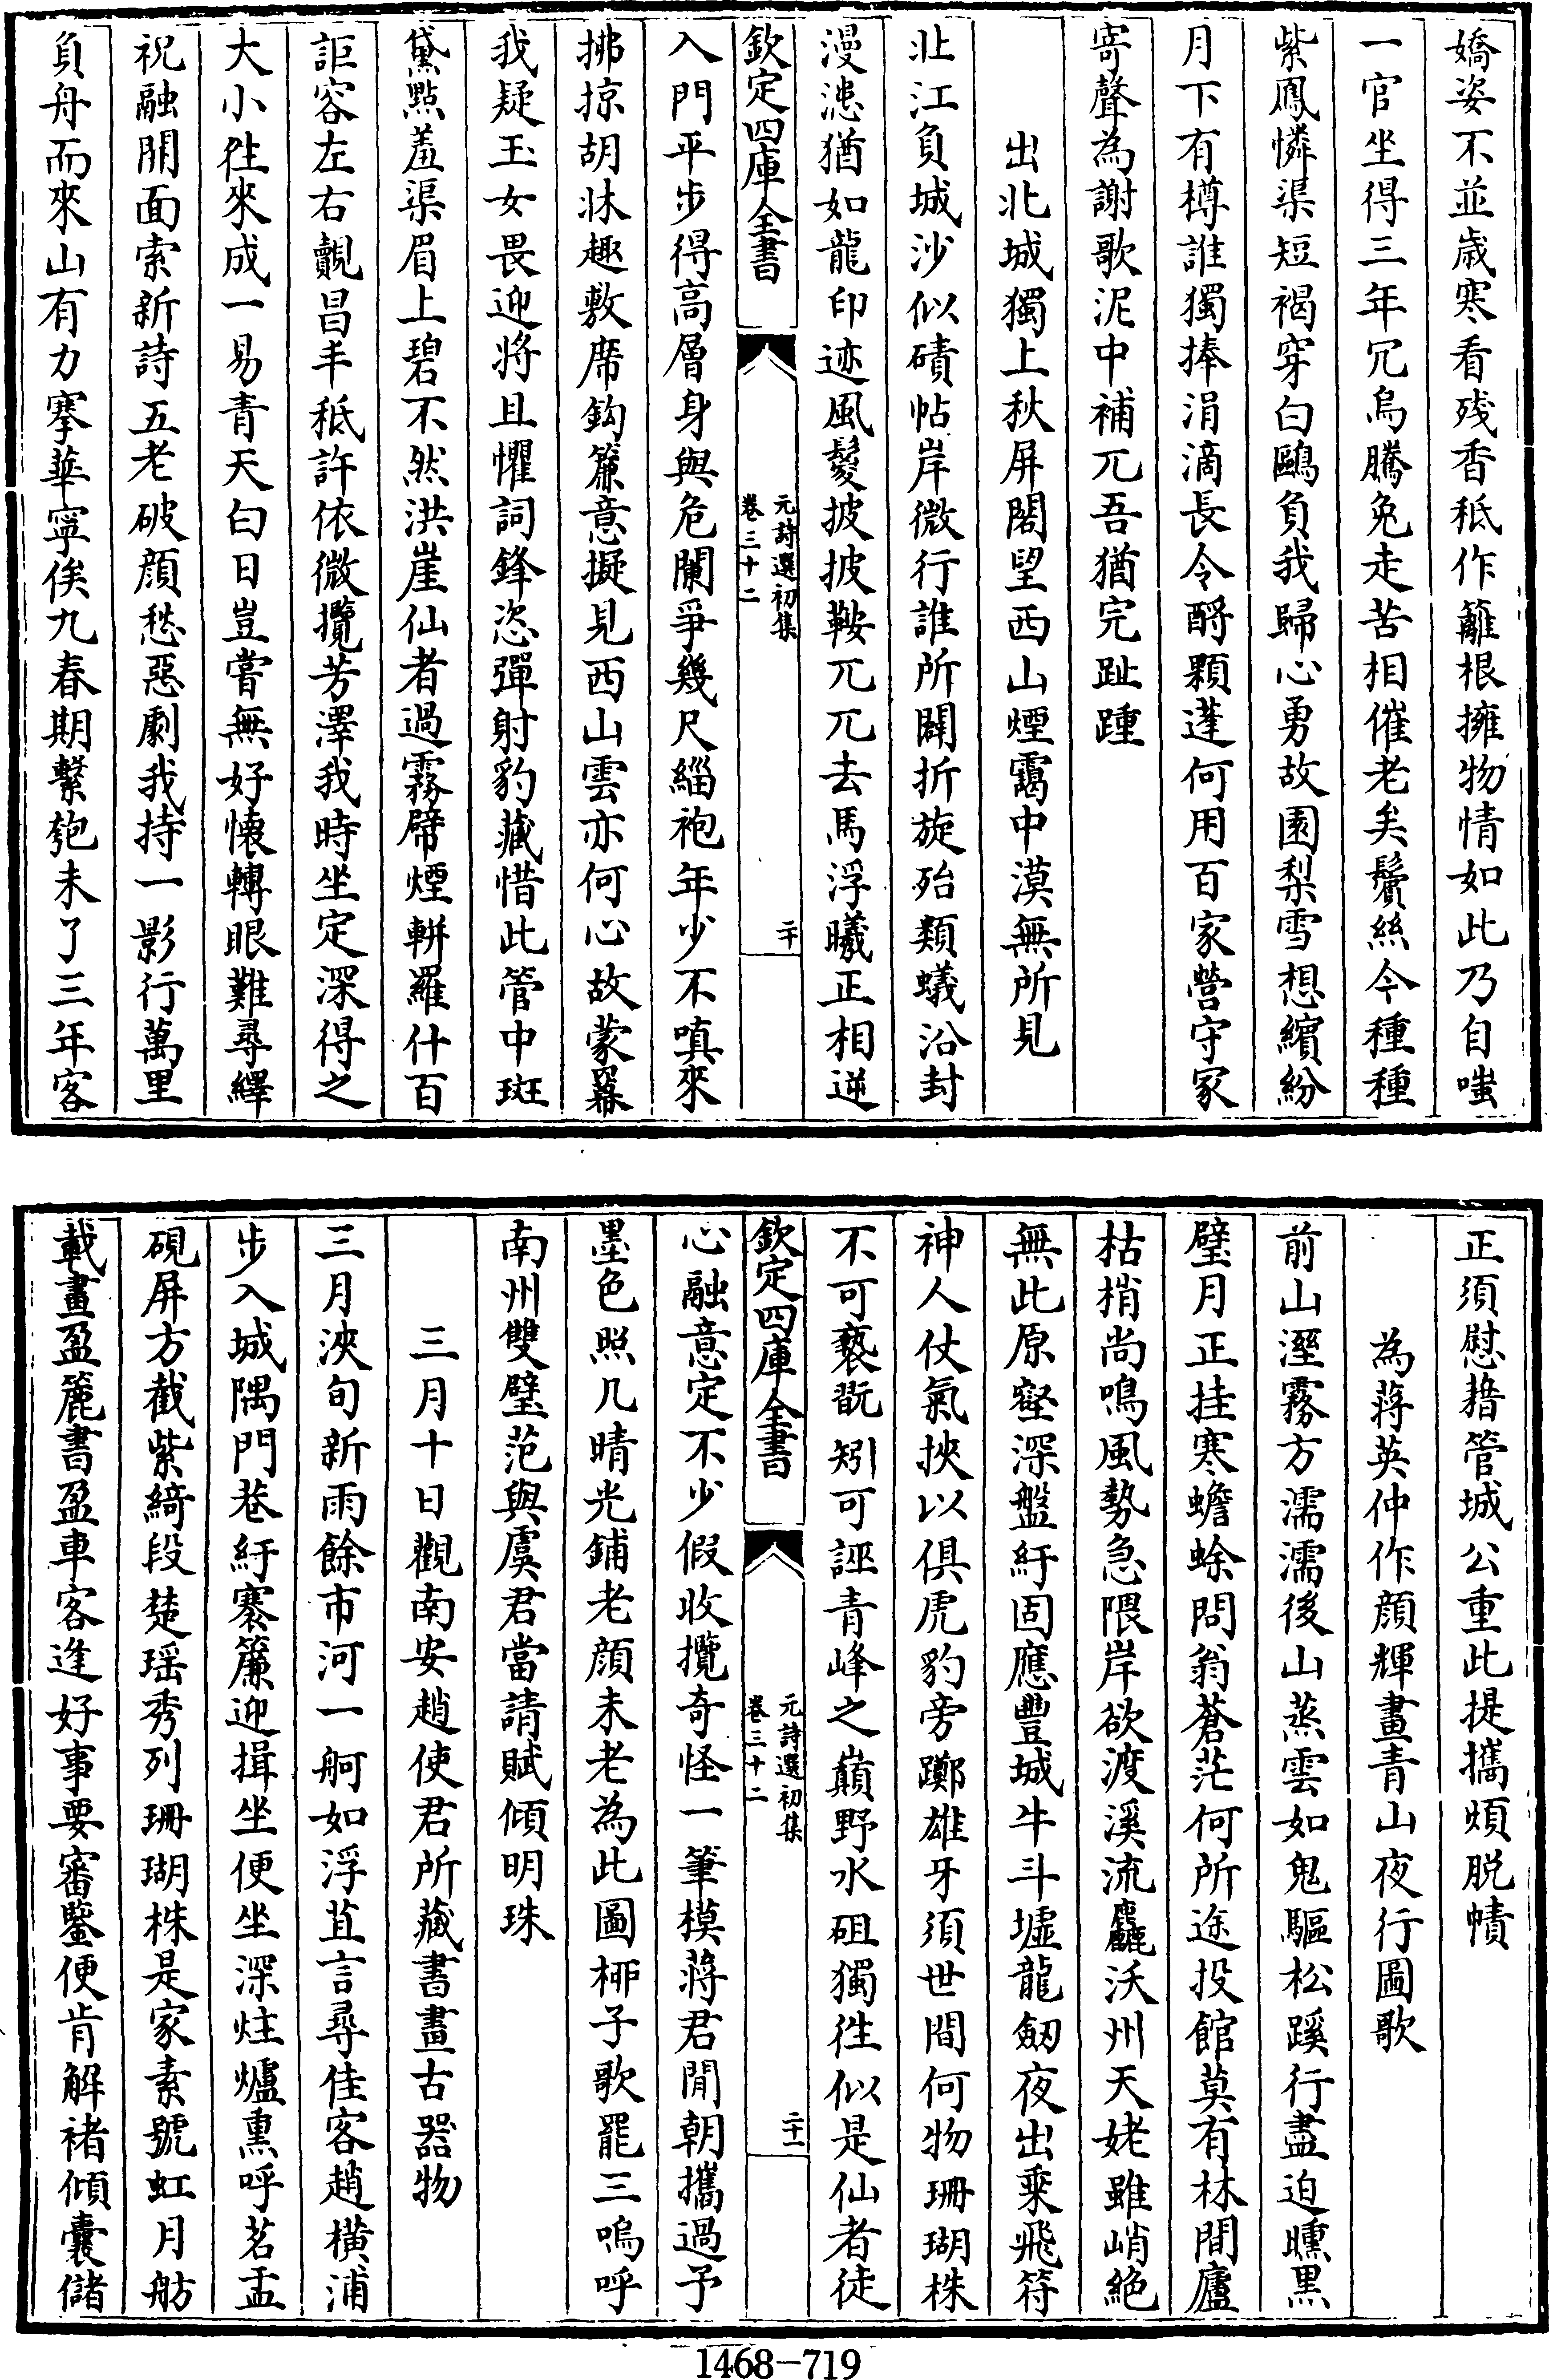 嬌姿不並歲寒看殘香秪作籬根擁物情如此乃自嗤
一官坐得三年冗烏騰兔走苦相催老矣鬢絲今種種
紫鳳憐渠短褐穿白鷗負我歸心勇故園梨雪想繽紛
月下有樽誰獨捧涓滴長令酹顆蓬何用百家營守冢
寄聲為謝歌泥中補兀吾猶完趾踵
出北城獨上秋屏閣望西山煙靄中漠無所見
北江負城沙似磧帖岸微行誰所闢折旋殆類蟻沿封
漫漶猶如龍印迹風鬉披披鞍兀兀去馬浮曦正相逆
欽定四庫全書
元詩選初集
卷三十二
二十
入門平步得高層身與危闌爭幾尺緇袍年少不嗔來
拂掠胡牀趣敷席鈎簾意擬見西山雲亦何心故蒙羃
我疑玉女畏迎將且懼詞鋒恣彈射豹藏惜此管中斑
黛點羞渠眉上碧不然洪崖仙者過霧帟煙軿羅什百
詎容左右覿昌丰秪許依微攬芳澤我時坐定深得之
大小徃來成一易青天白日豈嘗無好懷轉眼難尋繹
祝融開面索新詩五老破顔愁惡劇我持一影行萬里
負舟而來山有力搴華寧俟九春期繫匏未了三年客
正須慰藉管城公重此提攜煩脱幘
為蔣英仲作顔輝畫青山夜行圖歌
前山溼霧方濡濡後山蒸雲如鬼驅松蹊行盡迫曛黒
璧月正挂寒蟾蜍問翁蒼茫何所途投館莫有林間廬
枯梢尚鳴風勢急隈岸欲渡溪流麤沃州天姥雖峭絶
無此原壑深盤紆固應豐城牛斗墟龍劒夜出乘飛符
神人仗氣挾以俱虎豹旁躑雄牙須世間何物珊瑚株
不可褻翫矧可誣青峰之巔野水砠獨徃似是仙者徒
欽定四庫全書
元詩選初集
卷三十二
二十一
心融意定不少假收攬奇怪一筆模蔣君閒朝攜過予
墨色照几晴光鋪老顔未老為此圖柳子歌罷三嗚呼
南州雙璧范與虞君當請賦傾明珠
三月十日觀南安趙使君所藏書畫古器物
三月浹旬新雨餘市河一舸如浮苴言尋佳客趙橫浦
步入城隅門巷紆褰簾迎揖坐便坐深炷爐熏呼茗盂
硯屏方截紫綺段楚瑶秀列珊瑚株是家素號虹月舫
載畫盈簏書盈車客逢好事要審鑒便肯解褚傾囊儲
1468—719